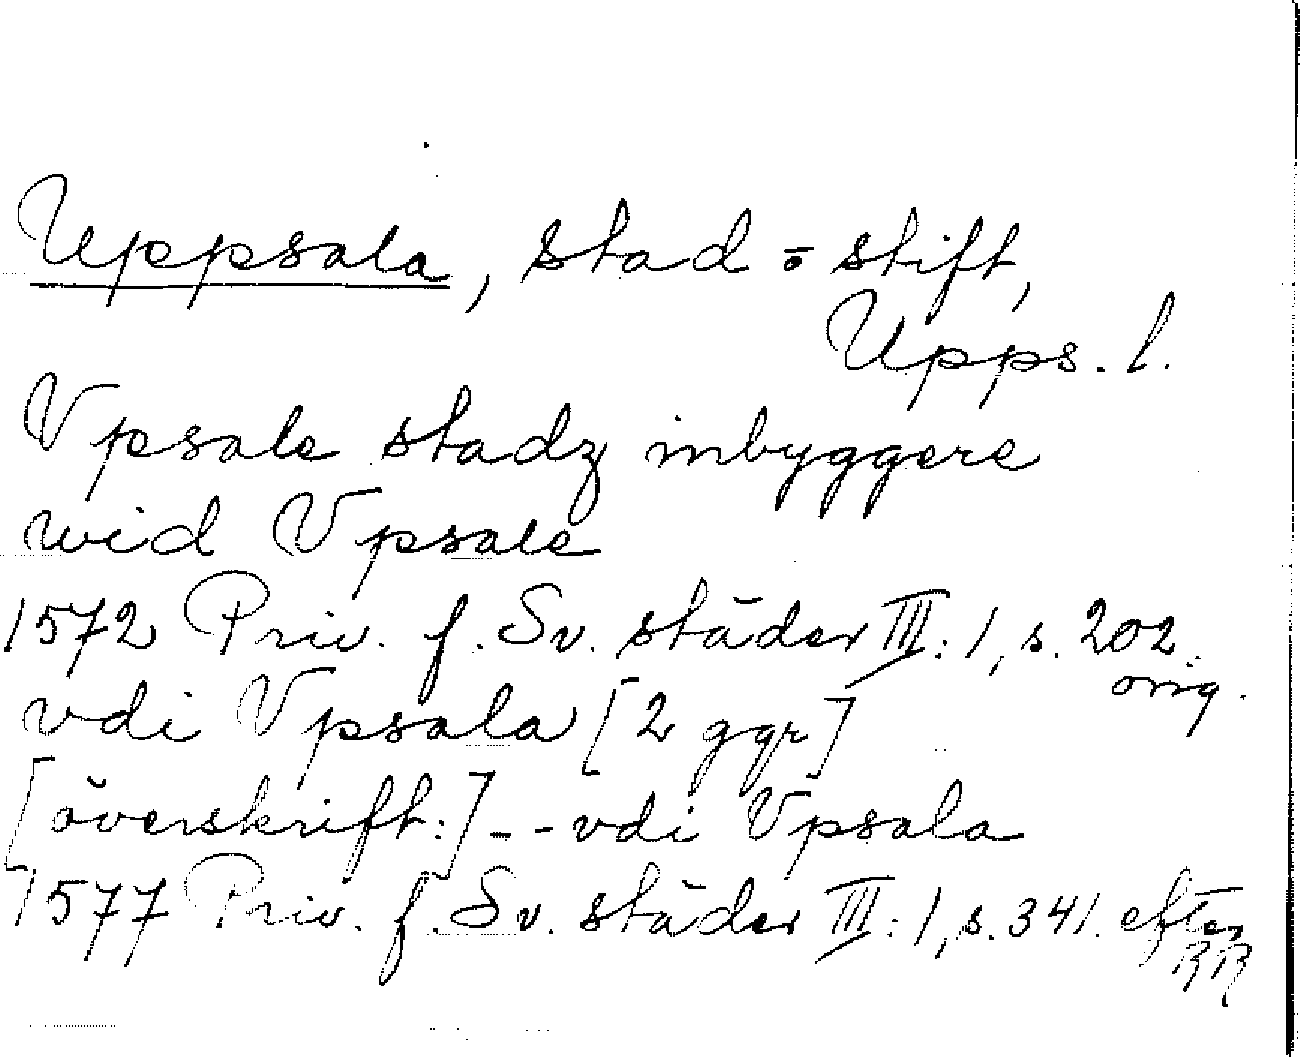 Uppsala, stad o stift,
Upps. l.
Vpsale stadz inbyggere
wid Vpsale
1572 Priv. f. Sv. städer III:1, s. 202.
orig.
vdi Vpsala [2 ggr]
[överskrift:] - - vdi Vpsala
1577 Priv. f. Sv. städer III:1, s. 341. efter
RR